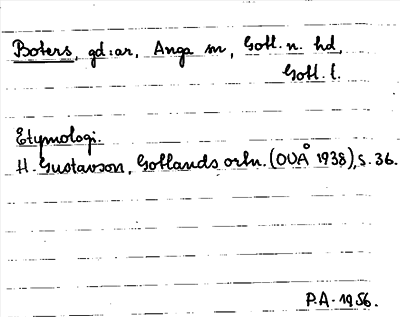 Boters, gd:ar, Anga sn, Gotl. n. hd,
Gotl. l.
Etymologi.
H. Gustavson, Gotlands ortn. (OUÅ 1938), s. 36.
P.A. 1956.